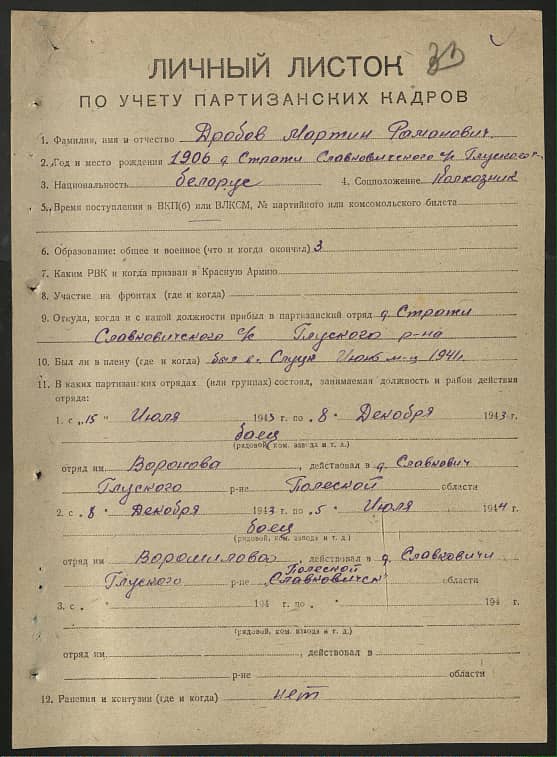 33
ЛИЧНЫЙ ЛИСТОК
ПО УЧЕТУ ПАРТИЗАНСКИХ КАДРОВ
1. Фамилия, имя и отчество Дробов Мартин Раманович.
2. Год и место рождения 1906 д Стражи Славковичского с/с Глуского р.
3. Национальность белорус 4. Соцположение Колхозник
5. Время поступления в ВКП(б) или ВЛКСМ, № партийного или комсомольского билета
6. Образование: общее и военное (что и когда окончил) 3
7. Каким РВК и когда призван в Красную Армию
8. Участие на фронтах (где и когда)
9. Откуда, когда и с какой должности прибыл в партизанский отряд д. Стражи
Славковичского с/с Глуского р-на
10. Был ли в плену (где и когда) был г. Слуцк Июнь м-ц 1941г.
11. В каких партизанских отрядах (или группах) состоял, занимаемая должность и район действия
отряда:
1. с „15" Июля 1943 г. по „8" Декабря 1943 г.
боец
(рядовой, ком. взвода и т. д.)
отряд им. Воронова, действовал в д. Славкович
Глуского р-не Полеской области
2. с „8" Декабря 1943 г. по „5" Июля 1944 г.
боец
(рядовой, ком. взвода и т. д.)
отряд им. Ворошилова, действовал в д. Славковичи
Полеской
Глуского р-не Славковичск области
3. с „ " 194 г. по „ " 194 г.
(рядовой, ком. взвода и т. д.)
отряд им. , действовал в
р-не области
12. Ранения и контузии (где и когда) нет